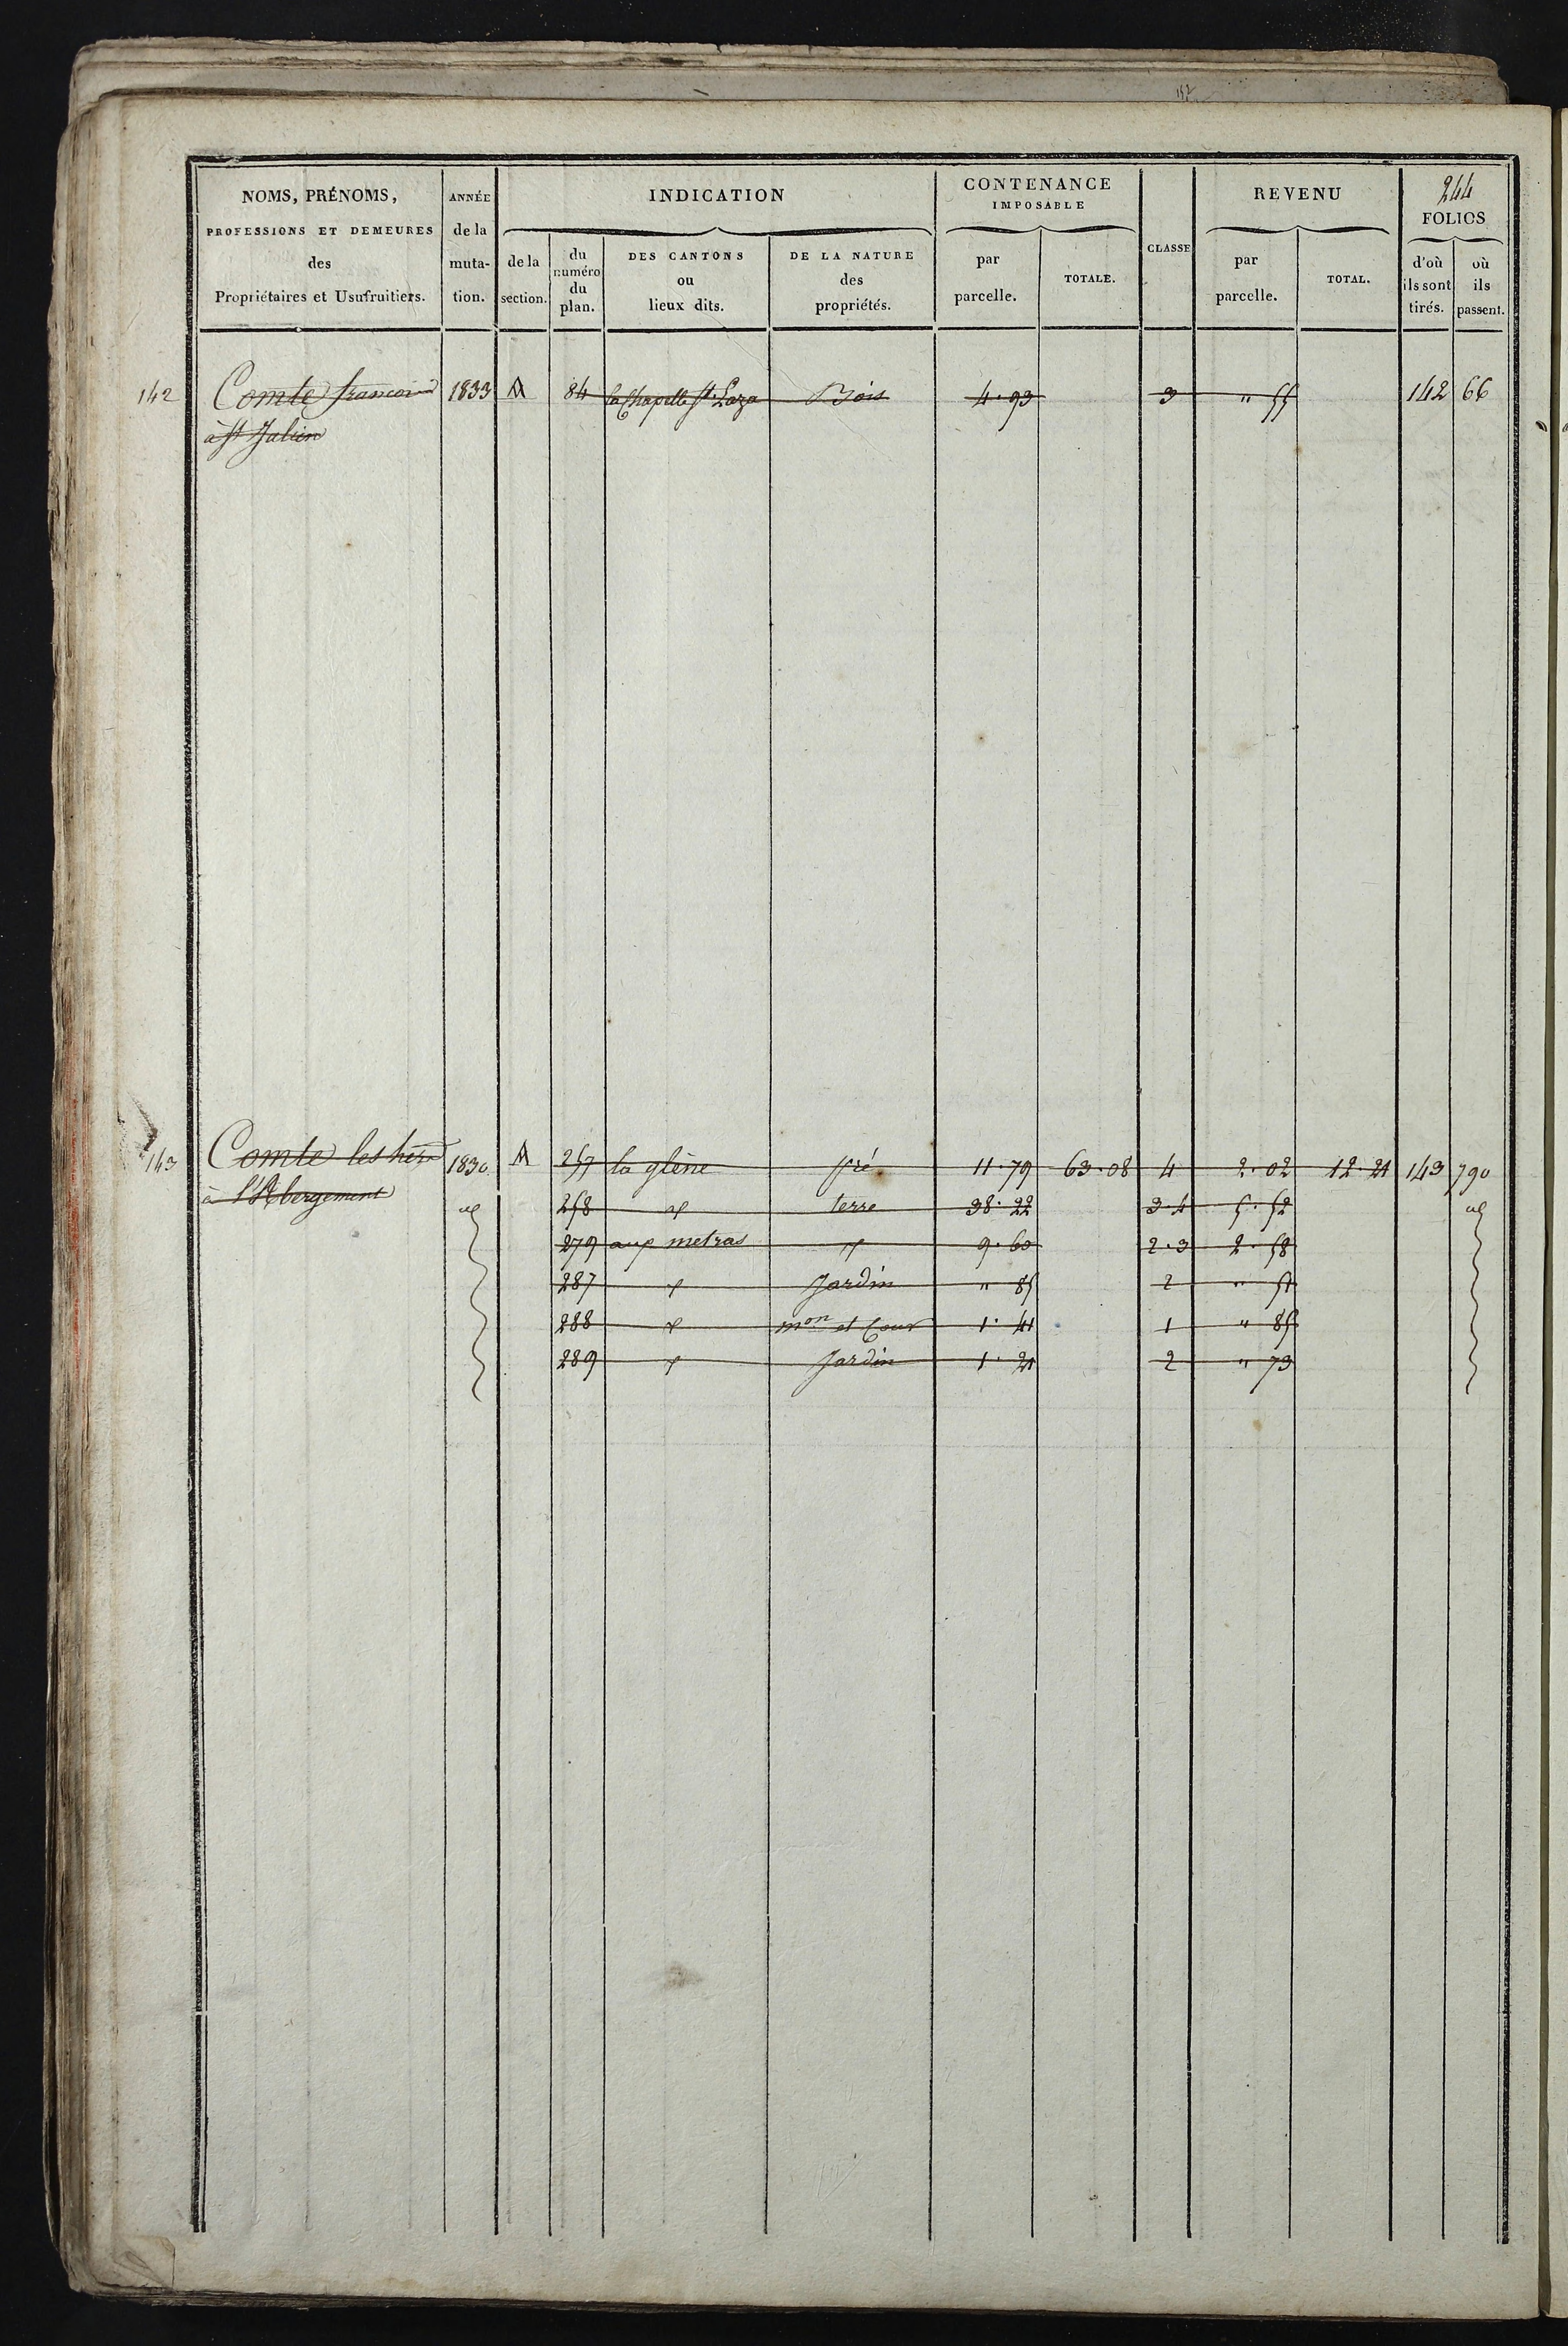 152
244
NOMS, PRÉNOMS, PROFESSIONS ET DEMEURES des Propriétaires et Usufruitiers.
ANNÉE de la muta- tion.
INDICATION
de la section.
du numéro du plan.
DES CANTONS ou lieux dits.
DE LA NATURE des propriétés.
CONTENANCE IMPOSABLE
par parcelle.
TOTALE.
CLASSE
REVENU
par parcelle.
TOTAL.
FOLIOS
d'où ils sont tirés.
où ils passent.
142 Comte francois 1833 A 84 la Chapelle St Laza Bois 4.93 3 " 55 142 66
à St Julien
143 Comte les hérs 1830 A 257 la glène pré 11.79 63.08 4 2.02 12.21 143 790
à l'Abergement
258 terre 38.22 3.4 5.52
279 aux metras 9.60 2.3 2.58
287 Jardin " 85 2 " 51
288 mon et Cour 1.41 1 " 85
289 Jardin 1.21 2 " 73